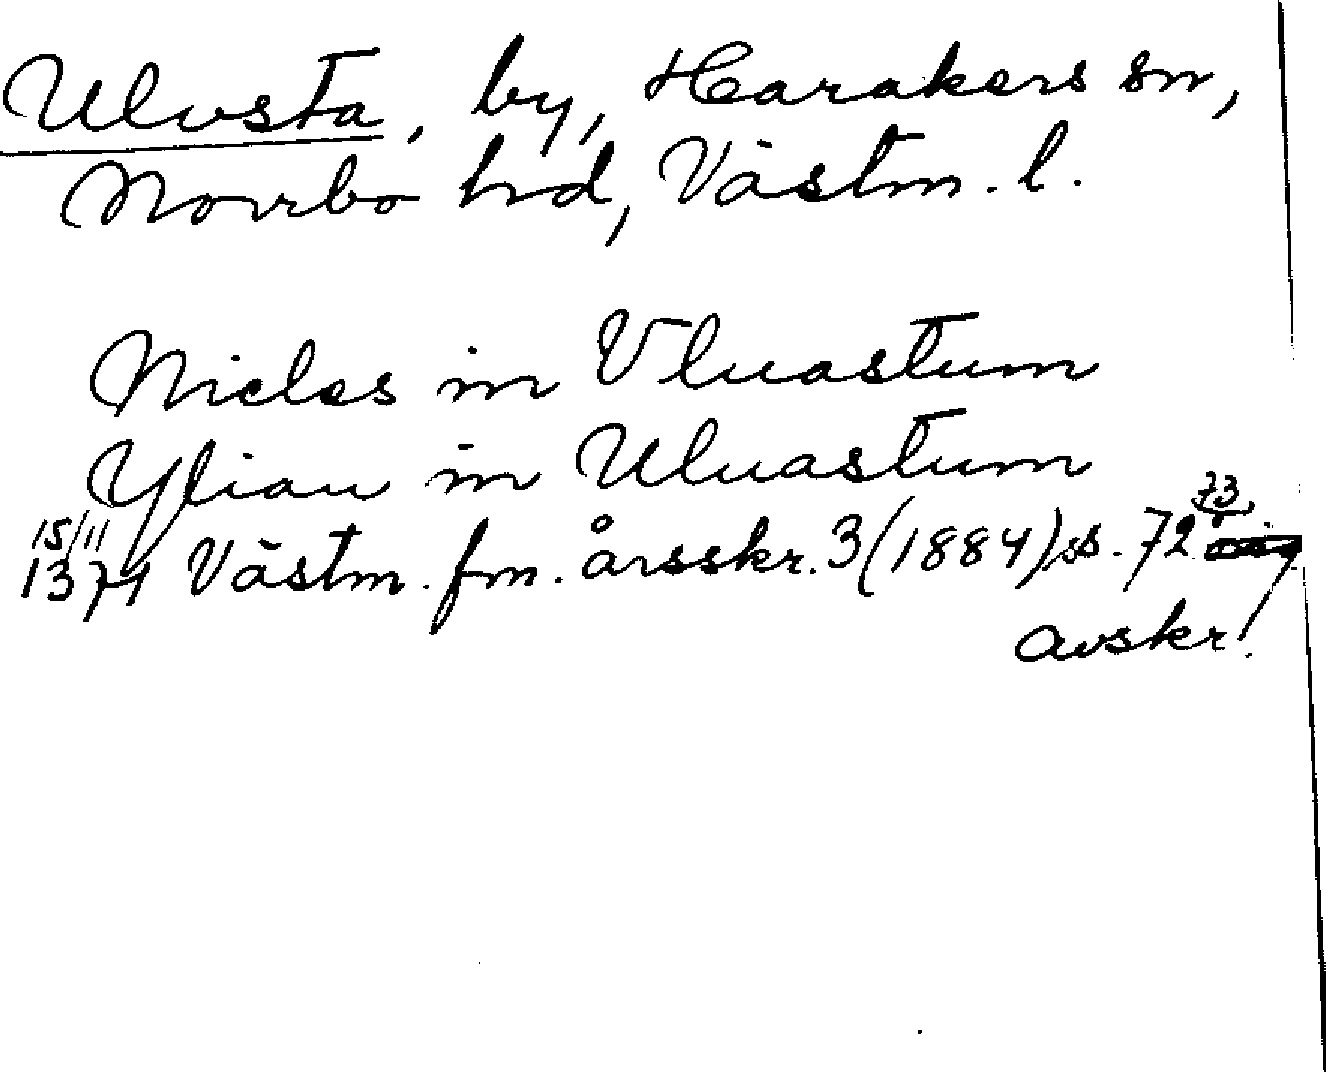 Ulvsta, by, Harakers sn,
Norrbo hd, Västm. l.
Nicles in Vluastum
Ylian in Uluastum
15/11 1371 Västm. fm. årsskr. 3 (1884) ss. 72 73,
avskr.